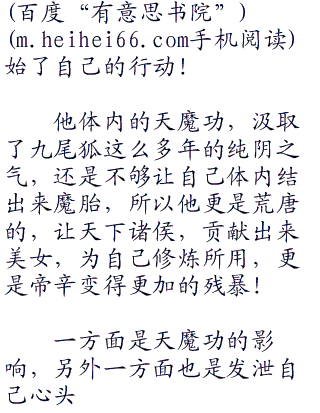 (百度“有意思书院”)
(m.heihei66.com手机阅读)
始了自己的行动！
他体内的天魔功，汲取
了九尾狐这么多年的纯阴之
气，还是不够让自己体内结
出来魔胎，所以他更是荒唐
的，让天下诸侯，贡献出来
美女，为自己修炼所用，更
是帝辛变得更加的残暴！
一方面是天魔功的影
响，另外一方面也是发泄自
己心头